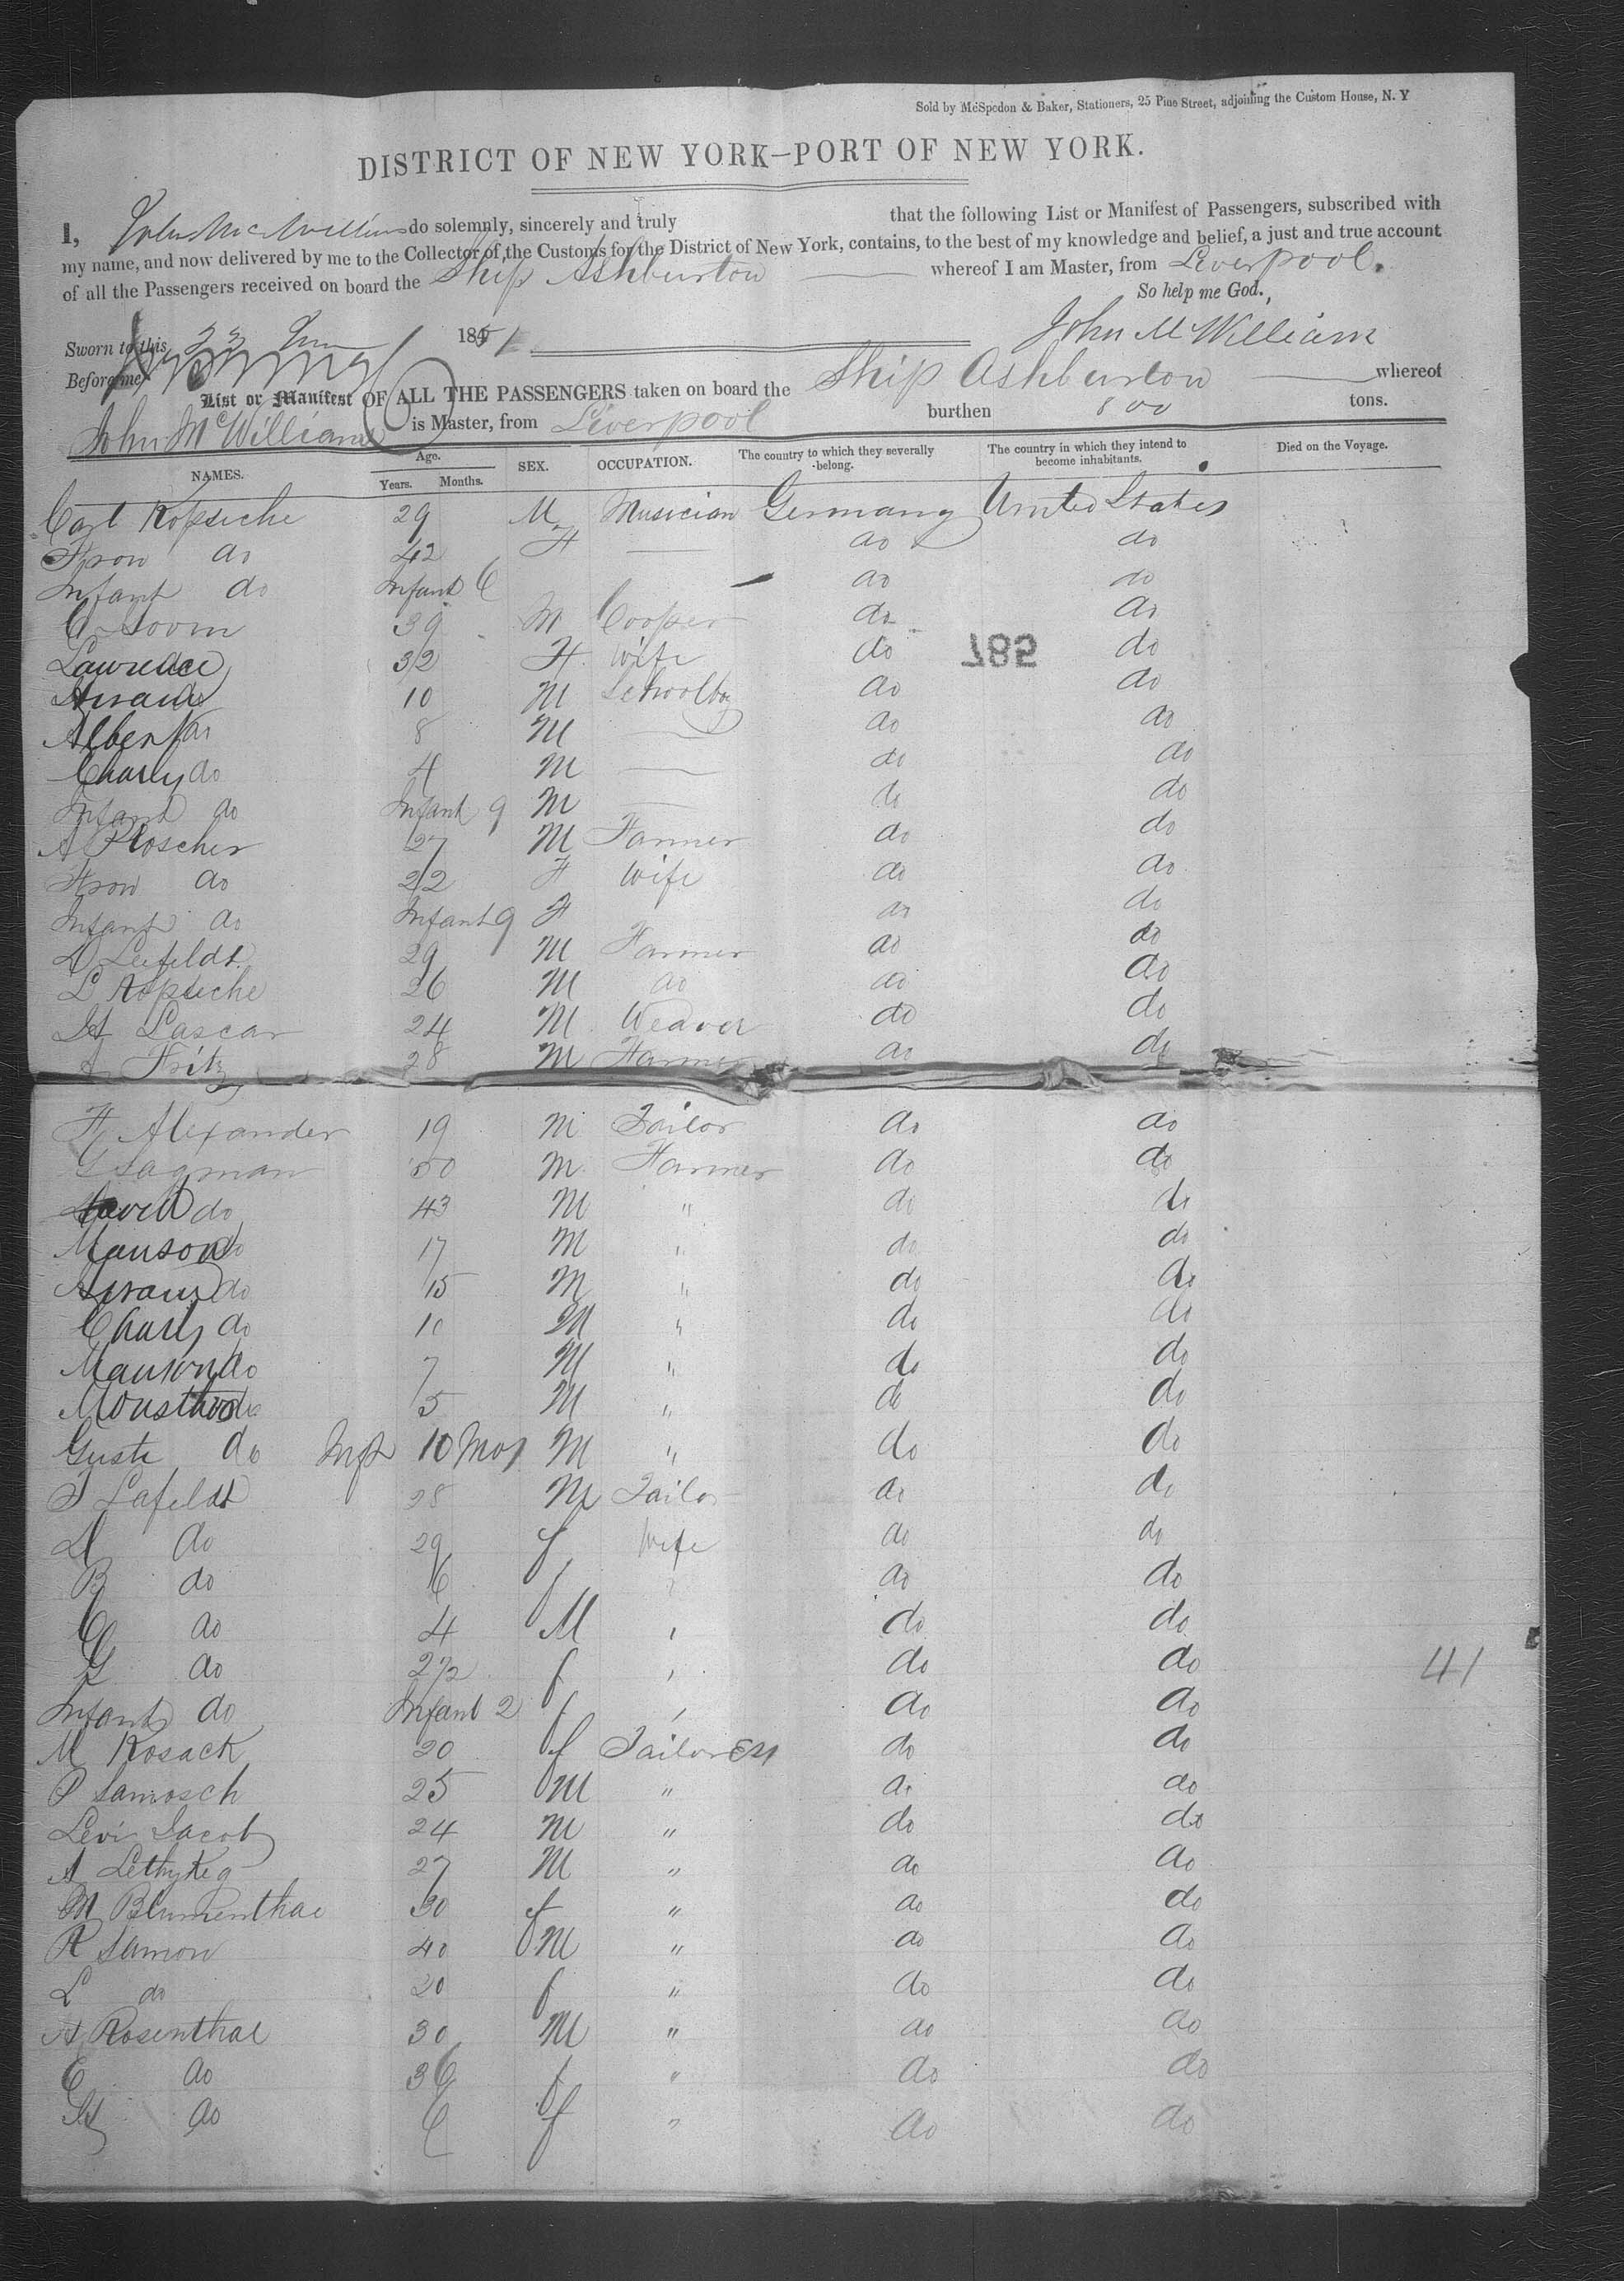 Sold by McSpedon & Baker, Stationers, 25 Pine Street, adjoining the Custom House, N. Y
DISTRICT OF NEW YORK—PORT OF NEW YORK.
I, John McWilliams do solemnly, sincerely and truly that the following List or Manifest of Passengers, subscribed with
my name, and now delivered by me to the Collector of the Customs for the District of New York, contains, to the best of my knowledge and belief, a just and true account
of all the Passengers received on board the Ship Ashburton whereof I am Master, from Liverpool.
So help me God.
Sworn to this 23 184 51
John McWilliam
Before me,
List or Manifest OF ALL THE PASSENGERS taken on board the Ship Ashburton whereof
John McWilliam is Master, from Liverpool burthen 800 tons.
NAMES. Age. Years. Months. SEX. OCCUPATION. The country to which they severally belong. The country in which they intend to become inhabitants. Died on the Voyage.
Carl Kopsiche 29 M Musician Germany United States
Frow do 42 F do do
Infant do Infant 6 do do
C Soom 39 M Cooper do do
Lawrence 32 F Wife do do
785
10 M Schoolboy do do
Albert do 8 M do do
Charly do 4 M do do
Infant do Infant 9 M do do
A Ploscher 27 M Farmer do do
Frow do 22 F Wife do do
Infant do Infant 9 F do do
D Leifeldt 29 M Farmer do do
L Kopsiche 26 M do do do
H Lascar 24 M Weaver do do
A Fritz 28 M Farmer do do
H Alexander 19 M Tailor do do
G Sagman 50 M Farmer do do
do 43 M " do do
Manson do 17 M " do do
do 15 M " do do
Charly do 10 M " do do
Manson do 7 M " do do
do 5 M " do do
Guste do Inft 10 Mos M " do do
T Lafeldt 28 M Tailor do do
D do 29 f Wife do do
B do 6 f " do do
C do 4 M " do do
G do 2 1/2 f " do do
41
Infant do Infant 2 f " do do
M Kosack 20 f Tailoress do do
P Samosch 25 M " do do
Levi Jacob 24 M " do do
A 27 M " do do
M Blumenthal 30 f " do do
R Samon 40 M " do do
L do 20 f " do do
A Rosenthal 30 M " do do
C do 36 f " do do
H do 6 f " do do